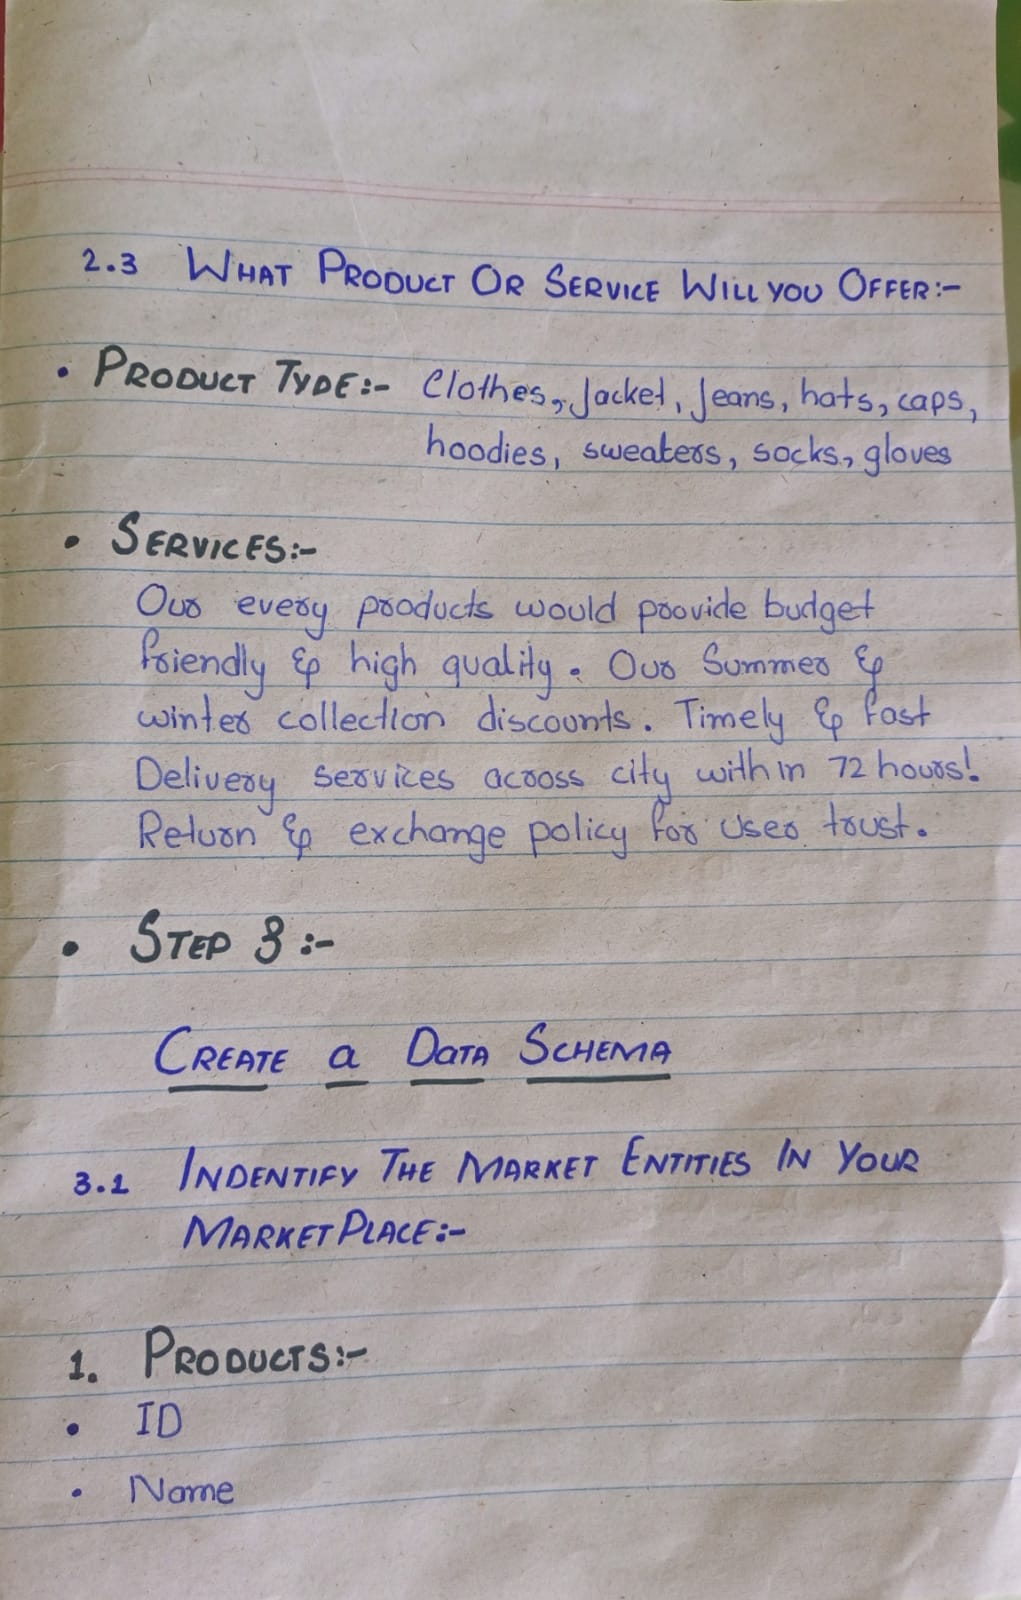 2.3 WHAT PRODUCT OR SERVICE WILL YOU OFFER:-
• PRODUCT TYPE:- Clothes, Jacket, Jeans, hats, caps,
hoodies, sweaters, socks, gloves
• SERVICES:-
Our every products would provide budget
friendly & high quality. Our Summer &
winter collection discounts. Timely & fast
Delivery services across city within 72 hours!
Return & exchange policy for user trust.
• STEP 3:-
CREATE a DATA SCHEMA
3.1 INDENTIFY THE MARKET ENTITIES IN YOUR
MARKETPLACE:-
1. PRODUCTS:-
• ID
• Name